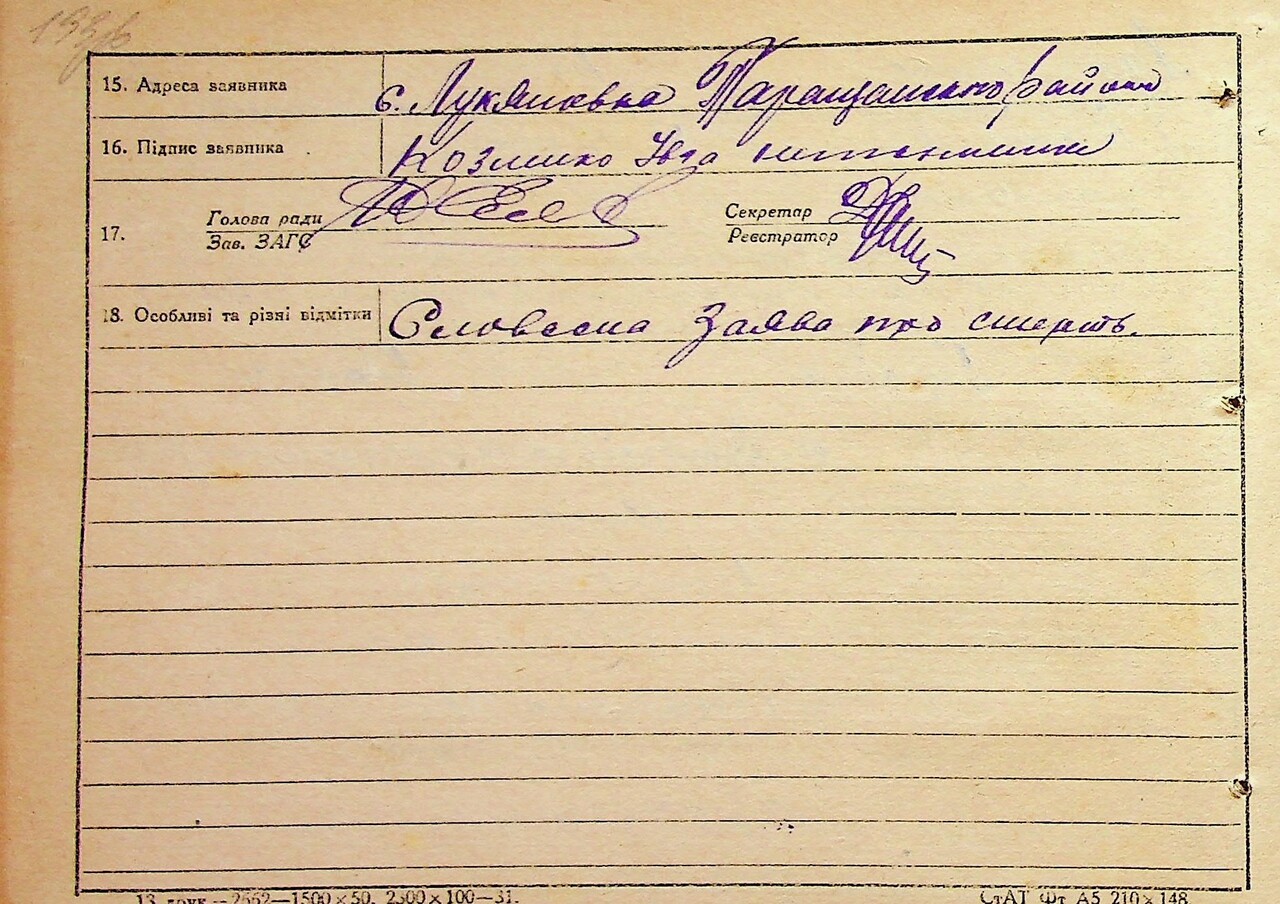 193
15. Адреса заявника с. Лукянівка Таращанського району
16. Підпис заявника Козленко Ївга неписьменна
17. Голова ради Секретар
Зав. ЗАГС Реєстратор
18. Особливі та різні відмітки Словесна заява про смерть.
13 друк.—2662—1500×50. 2300×100—31. СтАТ Фт А5 210×148